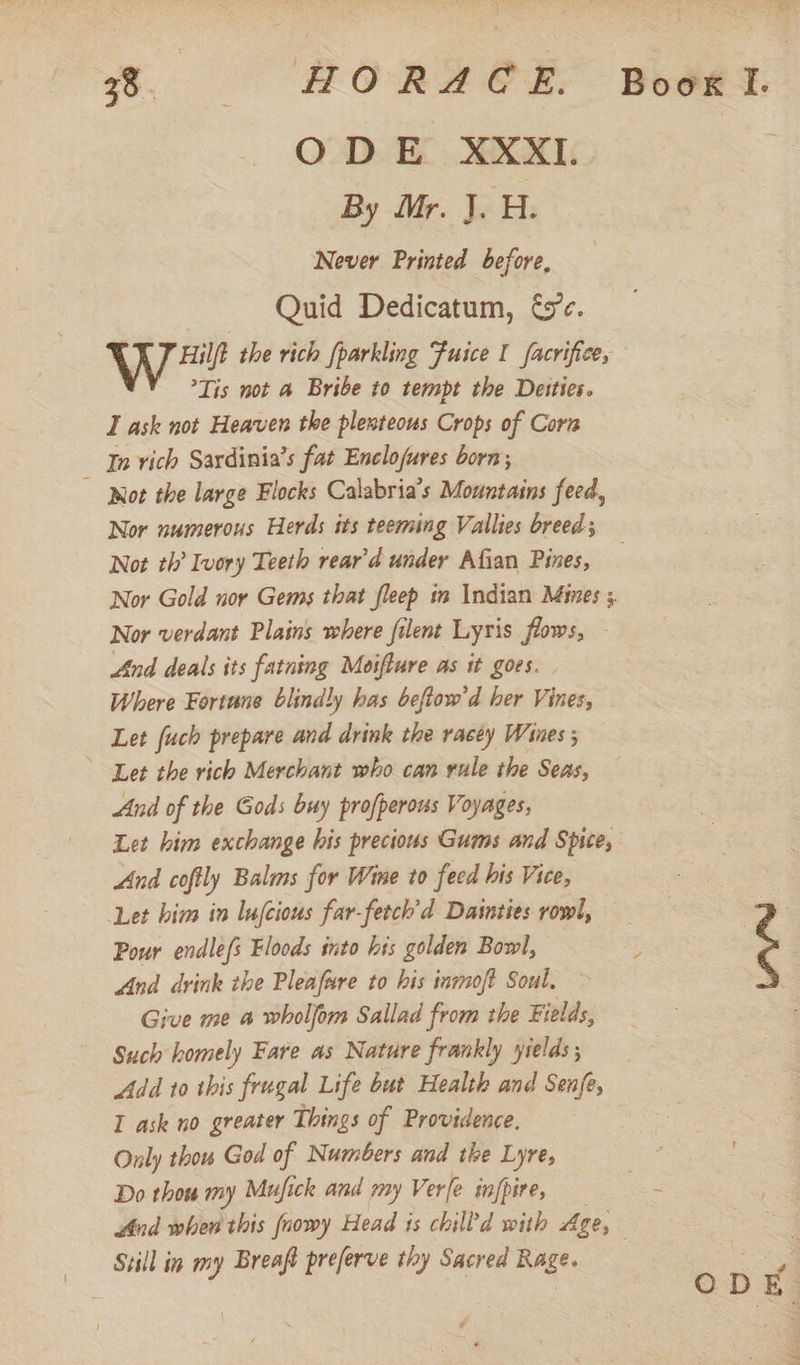 38 HORACE. Book I.
ODE XXXI.
By Mr. J. H.
Never Printed before.
Quid Dedicatum, &c.
WHilſt the rich ſparkling Juice I ſacrifice,
'Tis not a Bribe to tempt the Deities.
I ask not Heaven the plenteous Crops of Corn
In rich Sardinia's fat Encloſures born;
Not the large Flocks Calabria's Mountains feed,
Nor numerous Herds its teeming Vallies breed;
Not th' Ivory Teeth rear'd under Aſian Pines,
Nor Gold nor Gems that ſleep in Indian Mines;
Nor verdant Plains where ſilent Lyris flows,
And deals its fatning Moiſture as it goes.
Where Fortune blindly has beſtow'd her Vines,
Let ſuch prepare and drink the racéy Wines;
Let the rich Merchant who can rule the Seas,
And of the Gods buy proſperous Voyages,
Let him exchange his precious Gums and Spice,
And coſtly Balms for Wine to feed his Vice,
Let him in luſcious far-fetch'd Dainties rowl,
Pour endleſs Floods into his golden Bowl,
And drink the Pleaſure to his inmoſt Soul.
Give me a wholſom Sallad from the Fields,
Such homely Fare as Nature frankly yields;
Add to this frugal Life but Health and Senſe,
I ask no greater Things of Providence.
Only thou God of Numbers and the Lyre,
Do thou my Muſick and my Verſe inſpire,
And when this ſnowy Head is chill'd with Age,
Still in my Breaſt preſerve thy Sacred Rage.
ODE